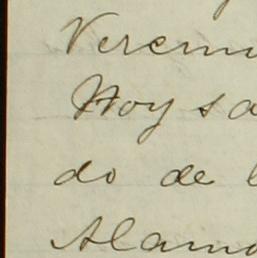 Verem
Hoy sa
do de l
Alam